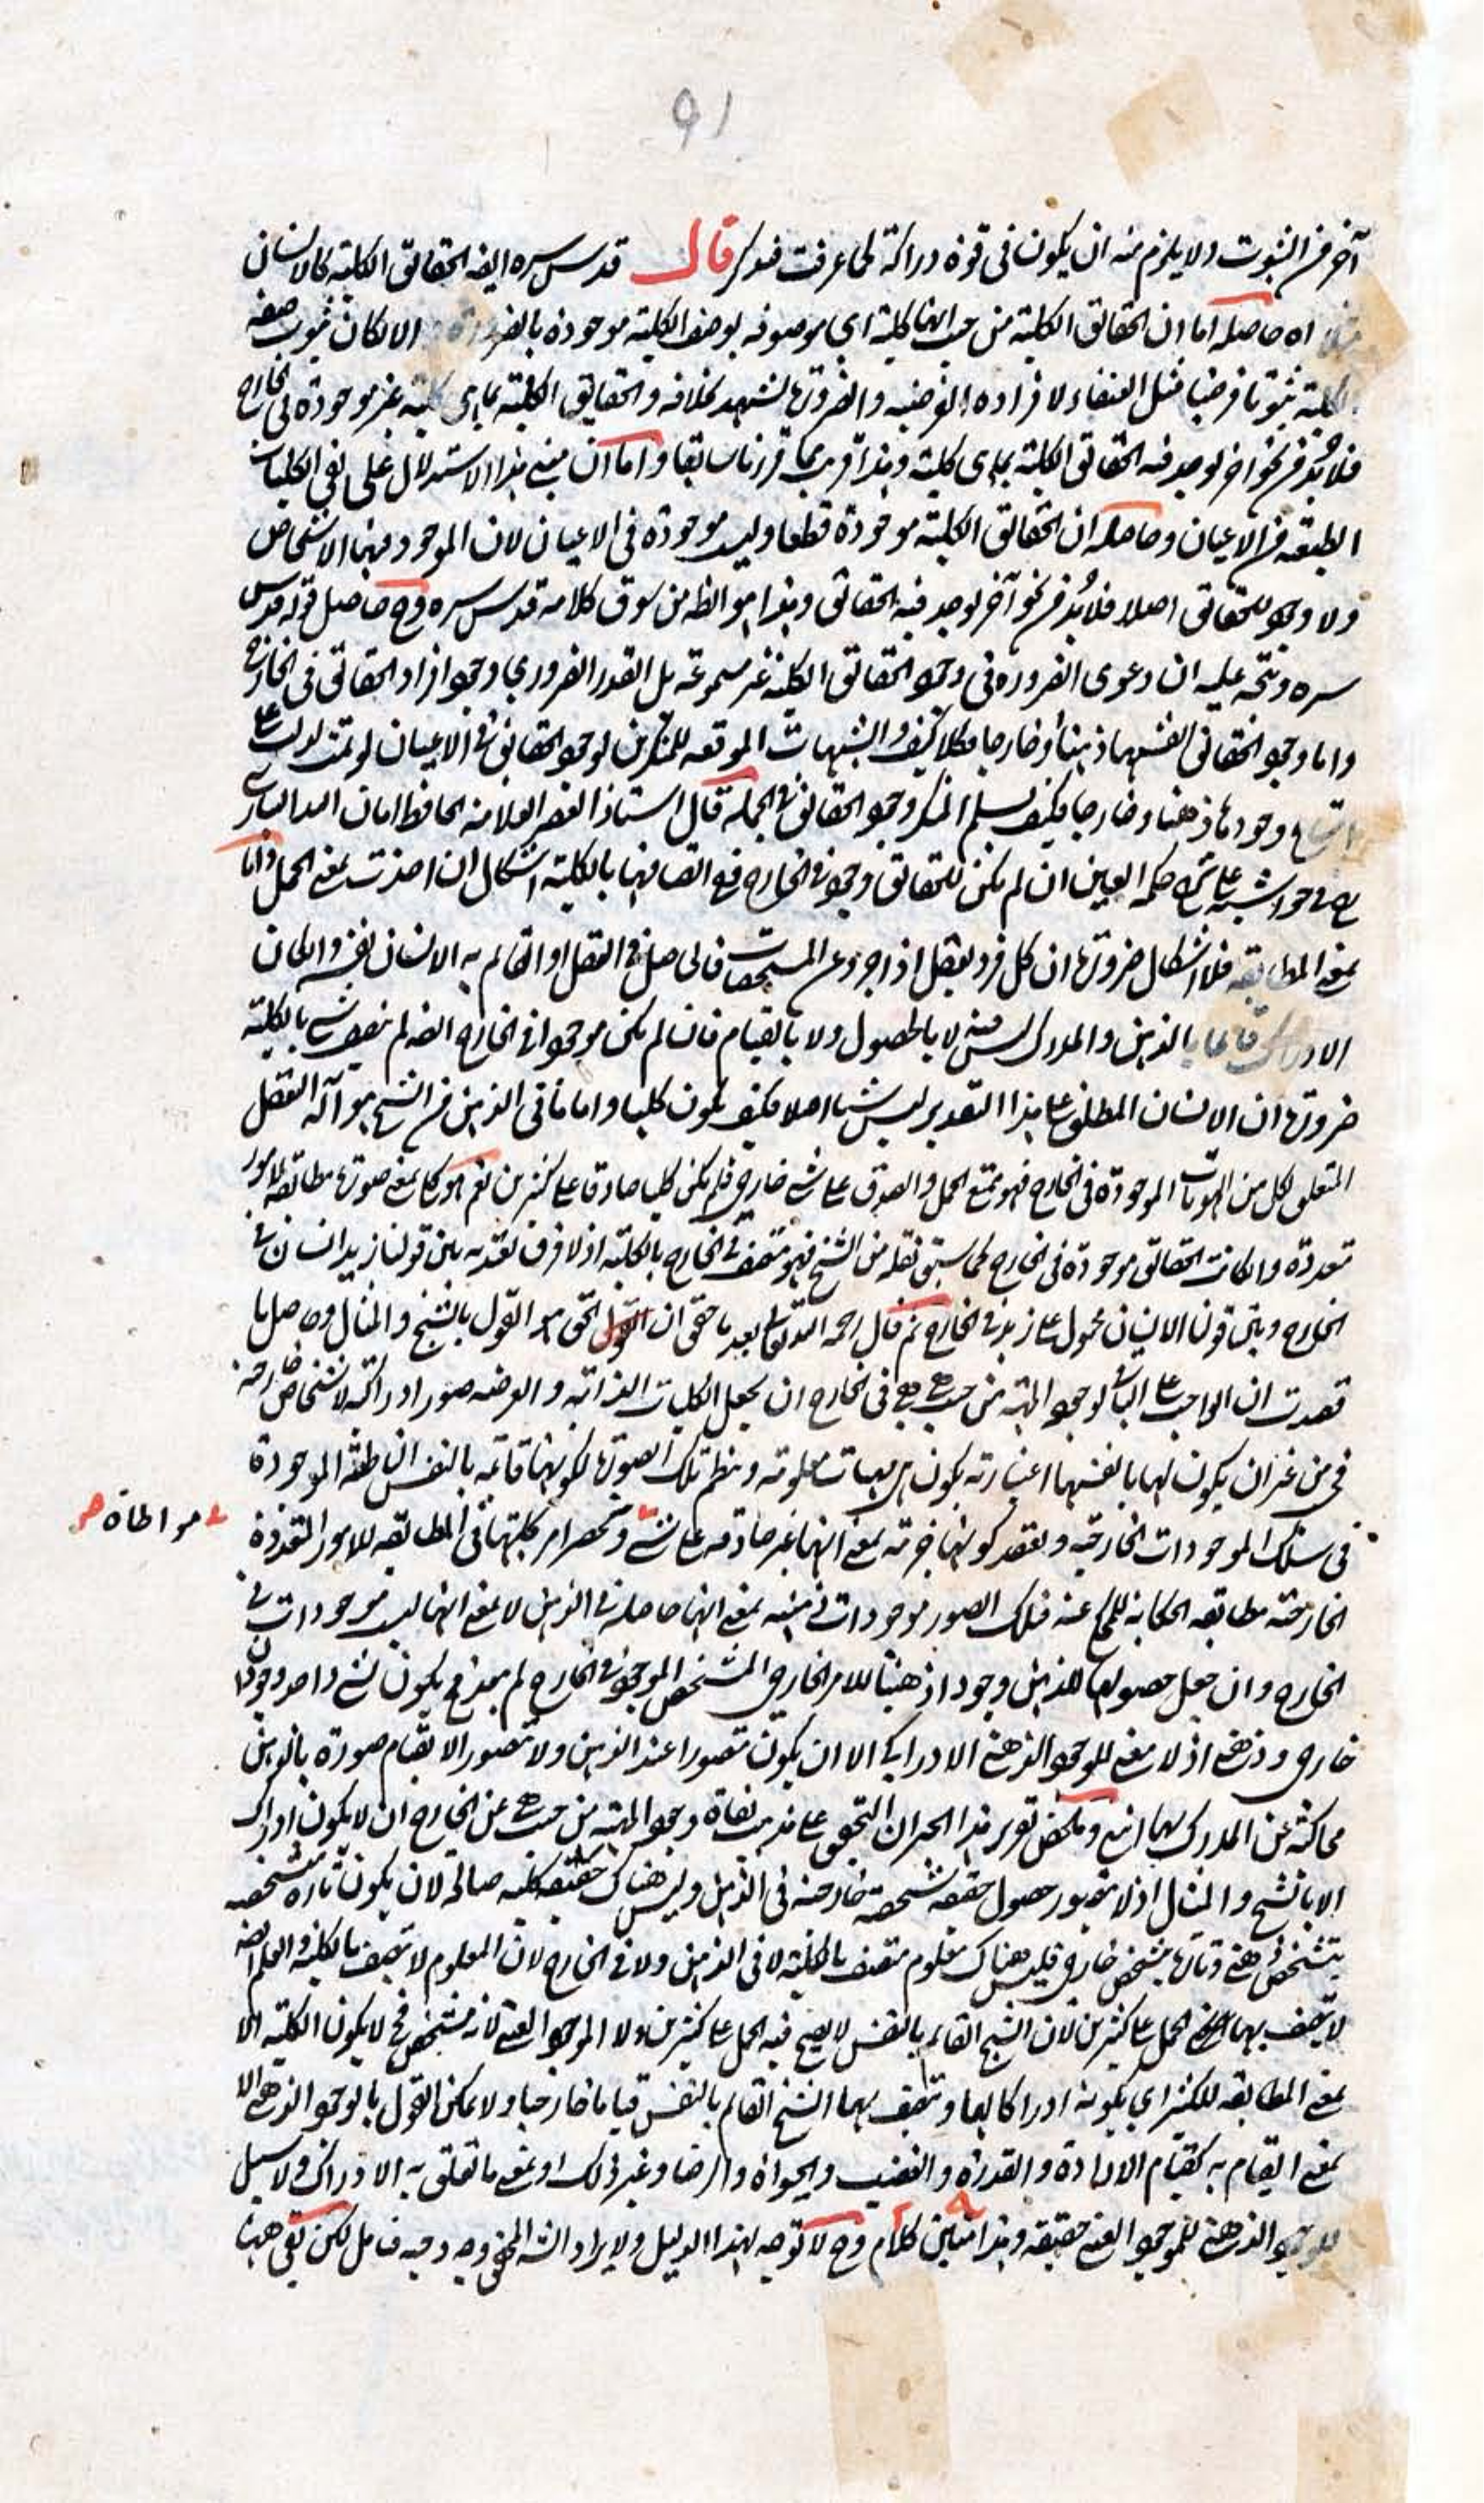 91
آخر من الثبوت ولا يلزم منه ان يكون فى قوة دراكة لما عرفت فتذكر قال قدس سره ايضا الحقائق الكلية كالانسان
اه حاصله اما ان الحقائق الكلية من حيث انها كلية اى موصوفه بوصف الكلية موجودة بالضرورة والا لكان ثبوت صفة
الكلية ثبوتا فرضيا مثل العنقاء لافراده الفرضيه والضرورة تشهد بخلافه والحقايق الكلية بما هى كلية غير موجودة فى الخارج
فلا بد من نحو اخر يوجد فيه الحقائق الكلية بما هى كلية وهذا قريب مما قررنا سابقا واما ان مبنى هذا الاستدلال على نفى الكليات
الطبيعة من الاعيان وحاصله ان الحقائق الكلية موجودة قطعا وليست موجودة فى الاعيان لان الموجود فيها الاشخاص
ولا وجود للحقائق اصلا فلا بد من نحو آخر يوجد فيه الحقائق وهذا هو الظ من سوق كلامه قدس سره وح حاصل قوله قدس
سره ويتجه عليه ان دعوى الضرورة فى وجود الحقائق الكلية غير مسموعة بل القدر الضرورى وجود افراد الحقائق فى الخارج
واما وجود الحقائق انفسها ذهنا او خارجا فكلا كيف والشبهات الموقعه للمنكرين لوجود الحقائق فى الاعيان لو تمت لدلت على
امتناع وجودها ذهنا وخارجا فكيف يسلم المنكر وجود الحقائق فى الجملة قال استاذ العصر العلامة الحافظ امان الله البنارسى
فى حواشيه على شرح حكمة العين ان لم يكن للحقائق وجود فى الخارج ففى اتصافها بالكلية اشكال ان اخذت بمعنى الحمل واما
بمعنى المطابقة فلا اشكال ضرورة ان كل فرد يعقل اذا جرد عن المشخصات فالحاصل فى العقل او القائم به الانسان نفسه وان كان
الادراك قائما بالذهن والمدرك ليس فيه لا بالحصول ولا بالقيام فان لم يكن موجودا فى الخارج ايضا لم يتصف شئ بالكلية
ضرورة ان الانسان المطلق على هذا التقدير ليس شيئا اصلا فكيف يكون كليا واما ما فى الذهن من الشبح هو آلة التعقل
المتعلق لكل من الهويات الموجودة فى الخارج فهو ممتنع الحمل والصدق على شئ خارجى فلم يكن كليا صادقا على كثيرين نعم هو كلى بمعنى صورة مطابقة لامور
متعددة وان كانت الحقائق موجودة فى الخارج كما سبق نقله من الشيخ فهو متصف فى الخارج بالكلية اذ لا فرق يعتد به بين قولنا زيد انسان فى
الخارج وبين قولنا الانسان محمول على زيد فى الخارج ثم قال رحمه الله تعالى بعد ما حقق ان القول الحق هو القول بالشبح والمثال وحاصل ما
قصدت ان الواجب على النافى لوجود الماهية من حيث هى هى فى الخارج ان يجعل الكليات الذاتية والعرضيه صورا ادراكية لاشخاص خارجية
فى من غير ان يكون لها بانفسها اعتبار به يكون هى مهيات معلومة وينظم تلك الصورة لكونها قائمة بالنفس الناطقة الموجودة
فى سلك الموجودات الخارجية ويعتقد كونها جزئية بمعنى انها غير صادقه على شئ وتحصر امر كليتها فى المطابقة للامور المتعددة
مواطاة صح
الخارجية مطابقة الحكاية للمحكى عنه فتلك الصور موجودات ذهنيه بمعنى انها حاصلة فى الذهن لا بمعنى انها ليست موجودات فى
الخارج وان جعل حصولها للذهن وجودا ذهنيا للامر الخارجى المتشخص الموجود فى الخارج لم يبعد فح يكون لشئ واحد وجودان
خارجى وذهنى اذ لا معنى للوجود الذهنى الادراكى الا ان يكون متصورا عند الذهن ولا تصور الا بقيام صورة بالذهن
محاكية عن المدرك بها انتهى وملخص تقرير هذا الحبر ان التحقيق على مذهب نفاة وجود الماهية من حيث هى عن الخارج ان لا يكون ادراك
الا بالشبح والمثال اذ لا يتصور حصول حقيقه شخصية خارجية فى الذهن وليس هناك حقيقة كلية صالحة لان يكون تارة متشخصه
بتشخص ذهنى وتارة بتشخص خارجى فليس هناك معلوم متصف بالكلية لا فى الذهن ولا فى الخارج لان المعلوم لا يتصف بالكلية والعلم ايضا
لا يتصف بها بمعنى الحمل على كثيرين لان الشبح القائم بالنفس لا يصح فيه الحمل على كثيرين ولا الموجود العينى لانه متشخص فح لا يكون الكلية الا
بمعنى المطابقة للكثير اى بكونه ادراكا لها ويتصف بها الشبح القائم بالنفس قياما خارجيا ولا يمكن القول بالوجود الذهنى الا
بمعنى القيام به كقيام الارادة والقدرة والغضب والحيواة والرضا وغير ذلك او بمعنى ما تعلق به الادراك ولا سبيل
للوجود الذهنى للموجود العينى حقيقة وهذا متين كلام وح لا توجه لهذا الدليل ولا يراد الشه المحقق وجه وجيه فتامل لكن بقى ههنا